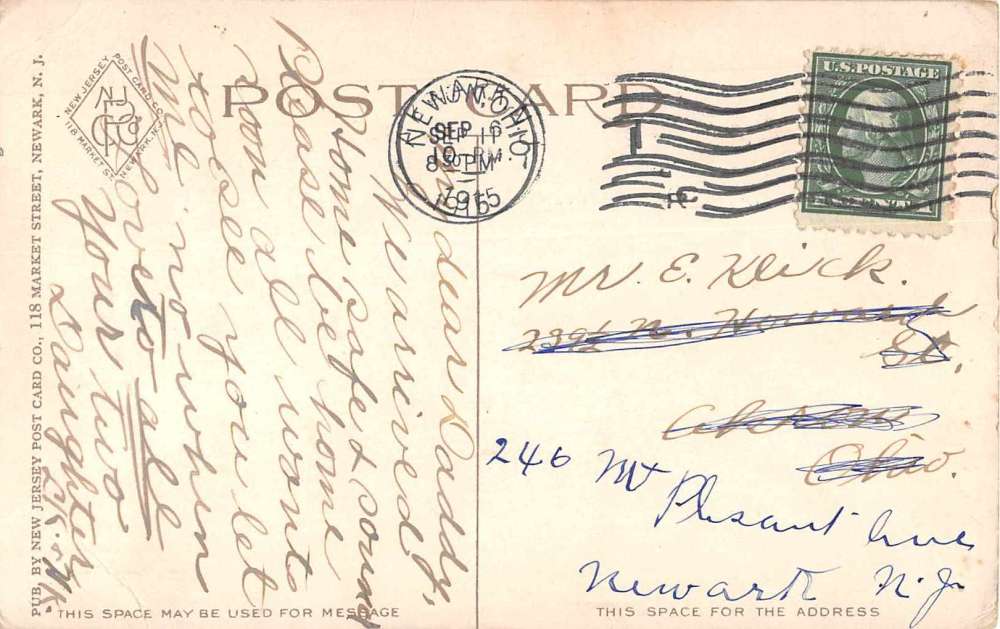 POST CARD
NEW JERSEY POST CARD CO.
118 MARKET ST. NEWARK, N.J.
N.J.
P.C.
Co.
PUB. BY NEW JERSEY POST CARD CO., 118 MARKET STREET, NEWARK, N. J.
dear Daddy,
We arrived
Home safe & sound
Please be home
soon all want
to see you let
me no when
Love to all
Your two
Daughters
THIS SPACE MAY BE USED FOR MESSAGE
NEWARK
SEP
PM
1915
U.S. POSTAGE
Mr. E. Klick.
239½ N. Howard
St.
Akron
Ohio.
246 Mt
Plesant Ave
Newark N.J.
THIS SPACE FOR THE ADDRESS